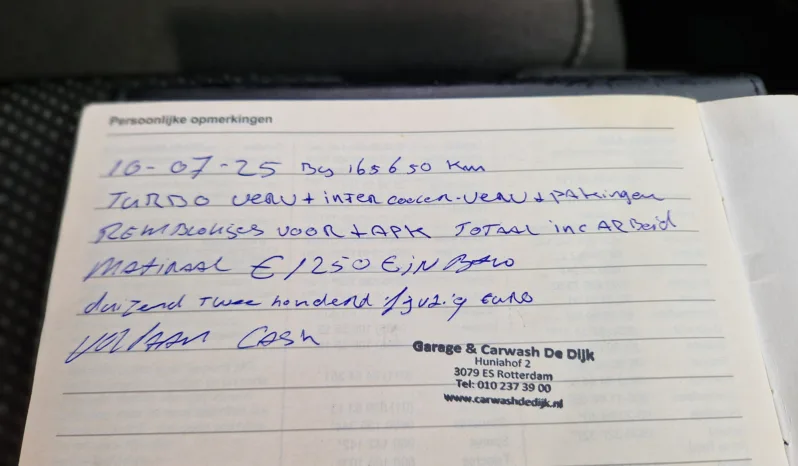 Persoonlijke opmerkingen
10-07-25 Bij 165650 Km
TURBO VERV + inTER cooler-VERV + PAKKingen
REMBLOKJES VOOR + APK TOTAAL inc ARBeid
MATiRiAAL € 1250 € iN
duizend twee honderd vijfzig euro
VOLDAAN CASH
Garage & Carwash De Dijk
Huniahof 2
3079 ES Rotterdam
Tel: 010 237 39 00
www.carwashdedijk.nl